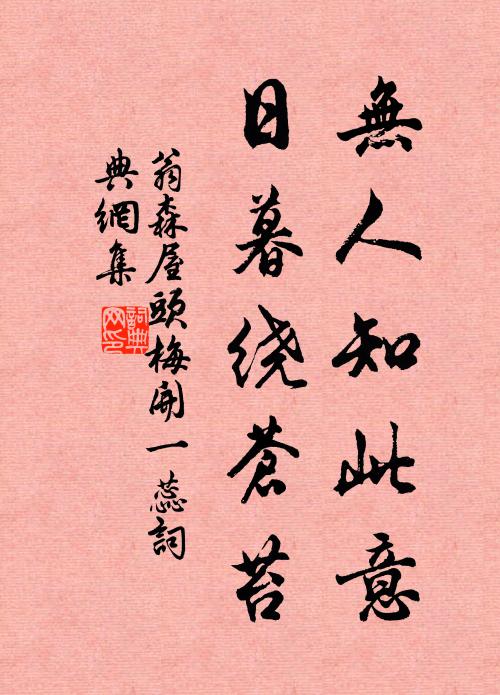 無人知此意
日暮绕蒼苔
翁森屋頭梅開一蕊詞
典網集
詞典网印